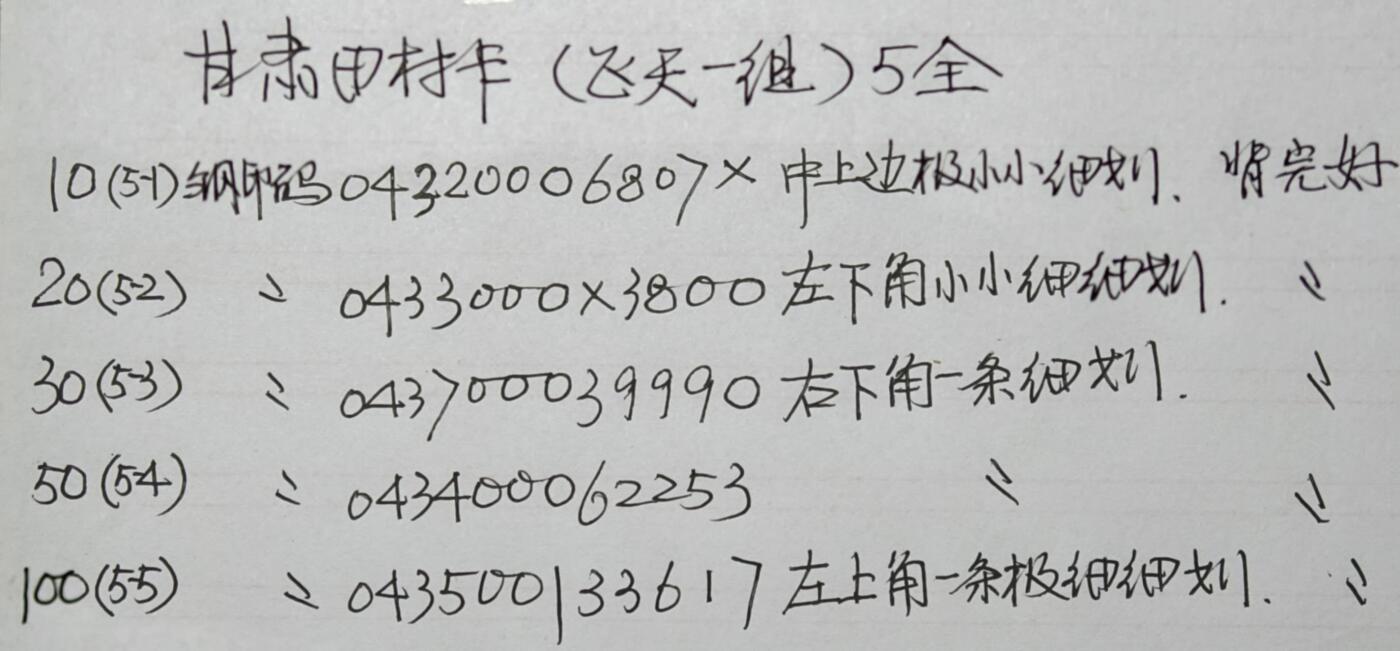 甘肃田村卡（飞天一组）5全
10(5-1)钢印码04320006807× 中上边极小小细划、背完好
20(5-2) 〃 0433000×3800 左下角小小细细划. 〃
30(5-3) 〃 043700039990 右下角一条细划. 〃
50(5-4) 〃 043400062253 〃 〃
100(5-5) 〃 043500133617 左上角一条极细细划. 〃